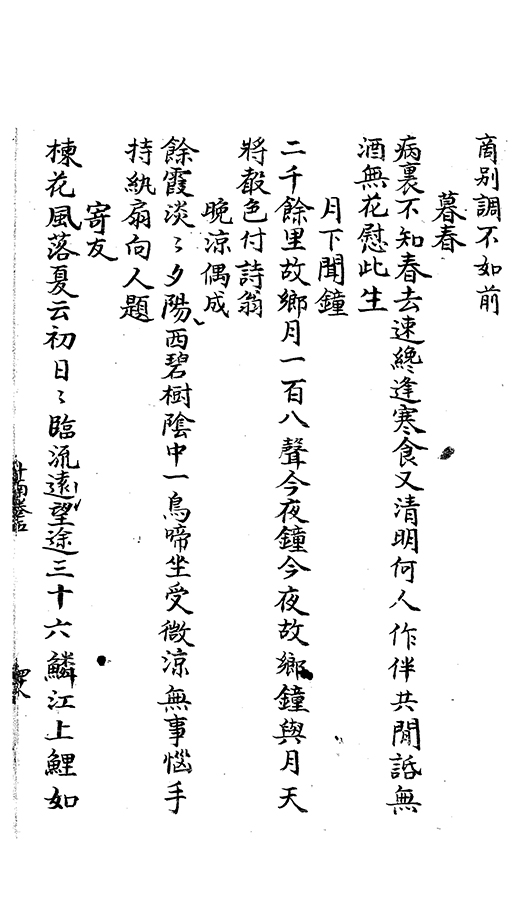 商别調不如前
暮春
病裏不知春去速纔逢寒食又清明何人作伴共閒話無
酒無花慰此生
月下聞鐘
二千餘里故鄉月一百八聲今夜鐘今夜故鄉鐘與月天
將聲色付詩翁
晚涼偶成
餘霞淡〻夕陽西碧樹陰中一鳥啼坐受微涼無事惱手
持紈扇向人題
寄友
楝花風落夏云初日〻臨流遠望途三十六鱗江上鯉如